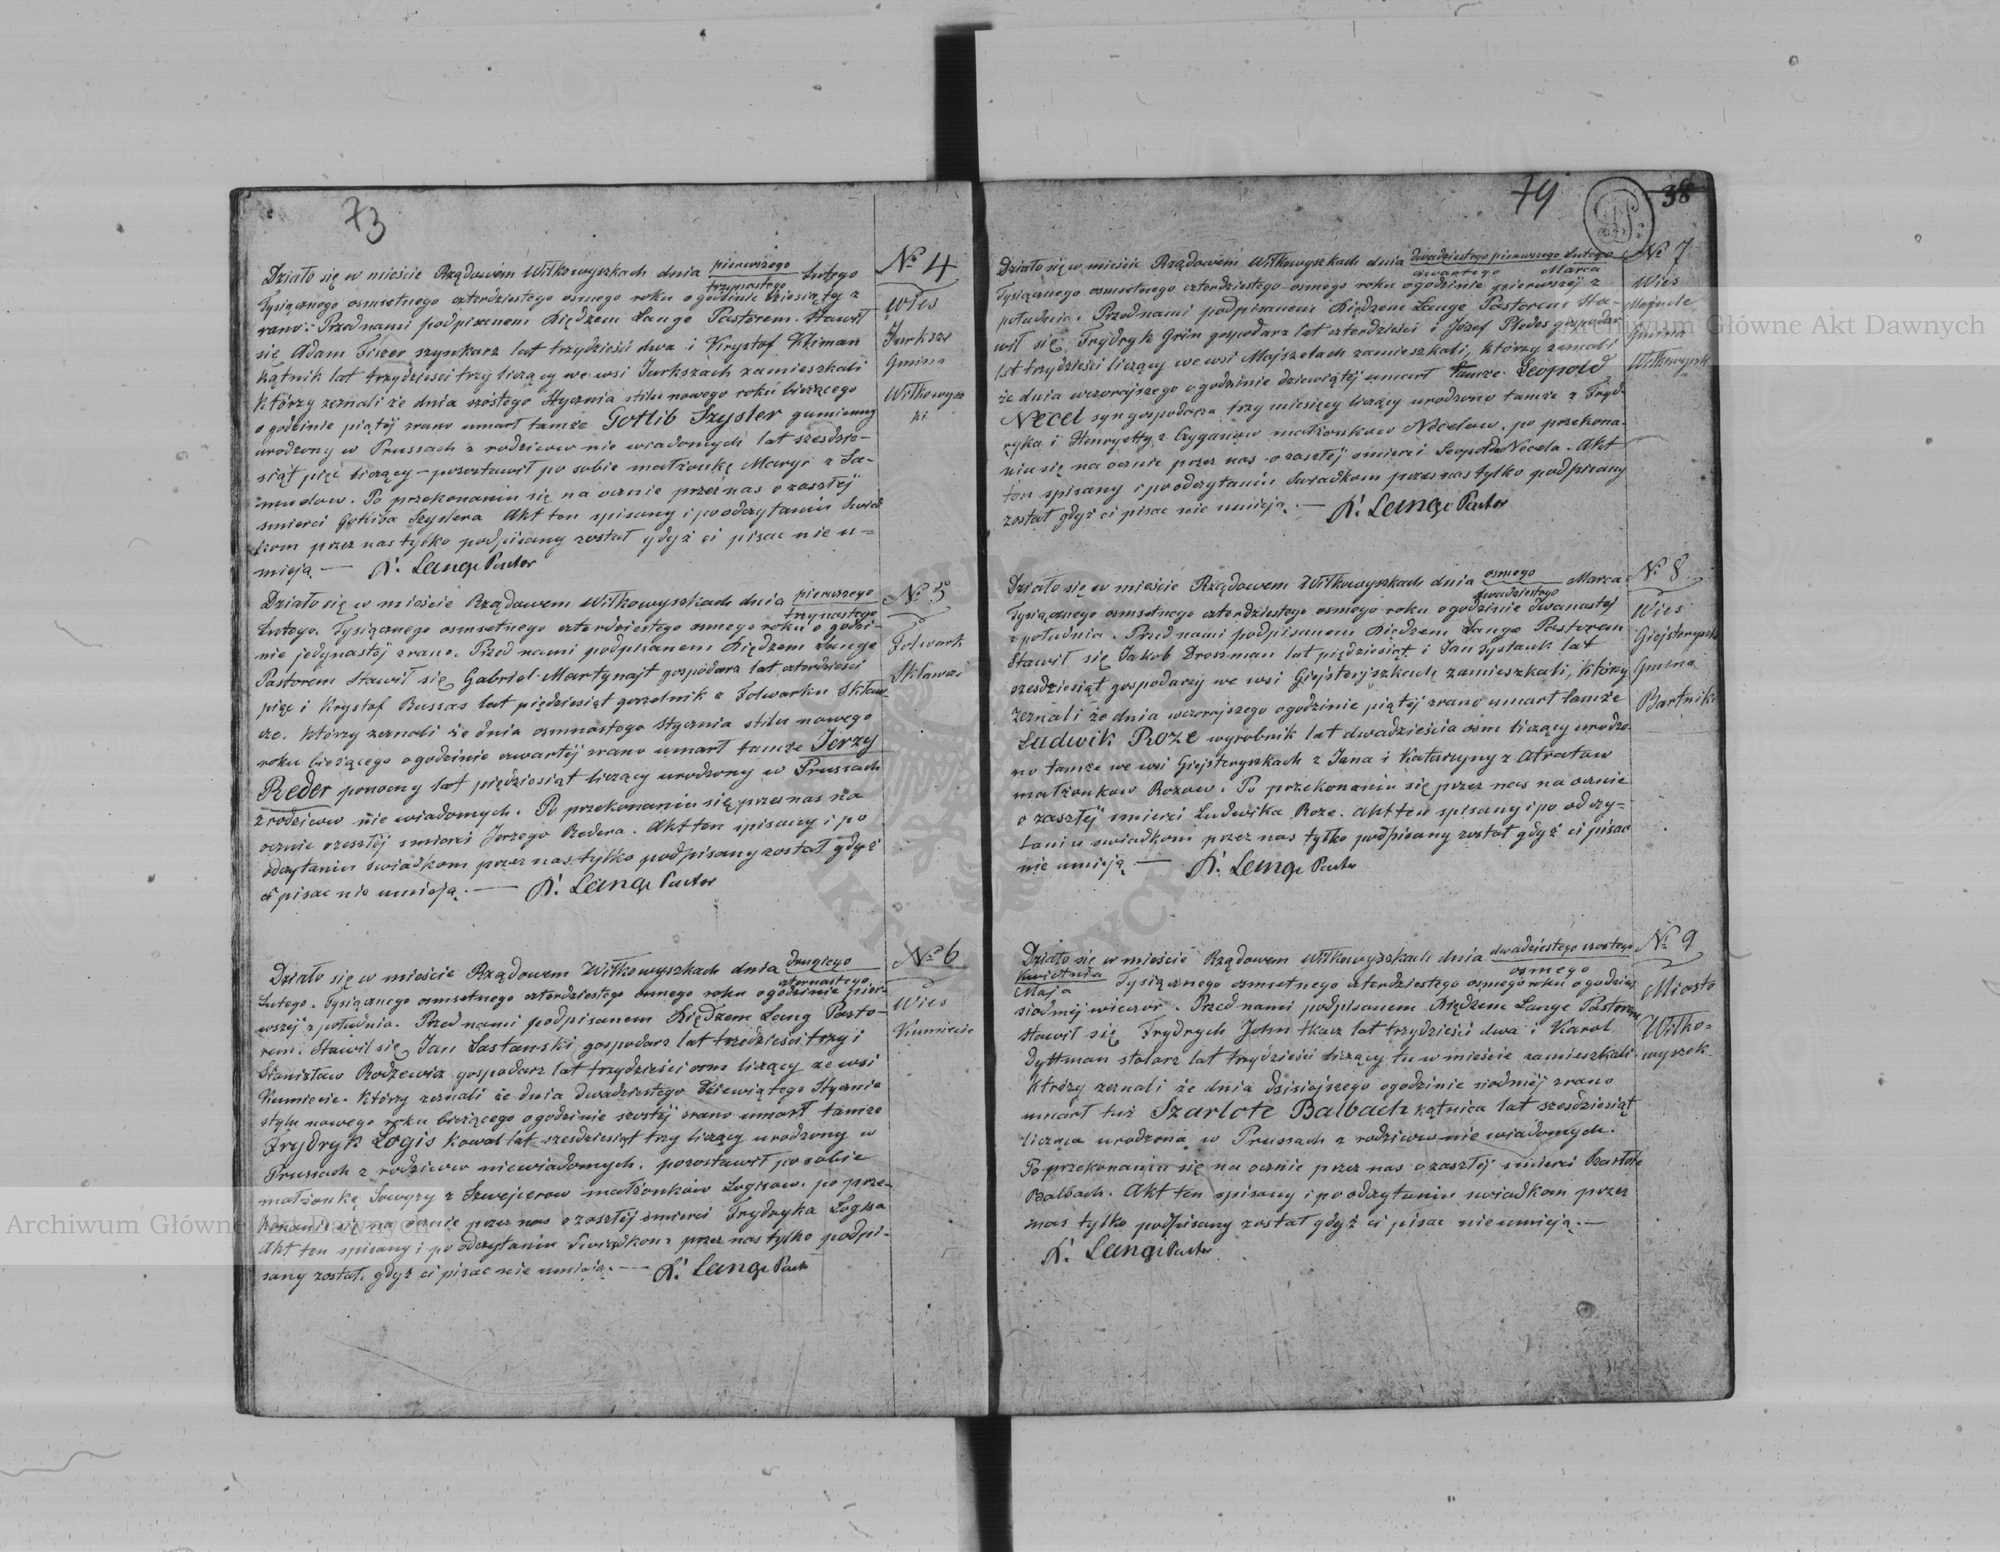 73
Nº 4
Wieś
Jurksze
Gmina
Wiłkowysz
ki
Działo się w mieście Rządowem Wiłkowyszkach dnia pierwszego / trzynastego Lutego
Tysiącznego osmsetnego czterdziestego osmego roku o godzinie dziesiątej z
rana. Przed nami podpisanem Księdzem Lange Pastorem. Stawił
się Adam Fiszer szynkarz lat trzydzieści dwa i Krystof Kliman
kątnik lat trzydzieści trzy liczący we wsi Jurkszach zamieszkali
którzy zeznali że dnia szóstego Stycznia stilu nowego roku bieżącego
o godzinie piątej zrana umarł tamże Gotlib Szysler gumienny
urodzony w Prussach z rodziców nie wiadomych lat sześdzie-
siąt pięć liczący – pozostawił po sobie małżonkę Maryę z Sa-
mudow. Po przekonaniu się na ocznie przez nas o zaszłej
smierci Gotliba Szyslera Akt ten spisany i po odczytaniu swiad
kom przez nas tylko podpisany został gdyż ci pisac nie u=
mieją. — K. Lange Pastor
Nº 5
Folwark
Skławdzi
Działo się w mieście Rządowem Wiłkowyszkach dnia pierwszego / trzynastego
Lutego. Tysiącznego osmsetnego czterdziestego osmego roku o godzi-
nie jedynastej zrana. Przed nami podpisanem Księdzem Lange
Pastorem stawił się Gabriel Martynajt gospodarz lat czterdzieści
pięc i Krystof Bussas lat pięćdziesiąt gorzelnik z Folwarku Skław-
dze. którzy zeznali że dnia osmnastego Stycznia stilu nowego
roku bieżącego o godzinie czwartej zrana umarł tamże Jerzy
Reder ponocny lat pięćdziesiąt liczący urodzony w Prussach
z rodzicow nie wiadomych. Po przekonaniu się przez nas na
ocznie o zeszłej smierci Jerzego Redera. Akt ten spisany i po
odczytaniu swiadkom przez nas tylko podpisany został gdyż
ci pisac nie umieją. — K. Lange Pastor
Nº 6
Wies
Kumiecie
Działo się w mieście Rządowem Wiłkowyszkach dnia drugiego / czternastego
Lutego. Tysiącznego osmsetnego czterdziestego osmego roku o godzinie pier-
wszej z południa. Przed nami podpisanem Księdzem Lang Pasto-
rem. Stawił się Jan Sastanski gospodarz lat trzedzieści trzy i
Stanisław Rodzewicz gospodarz lat trzydzieści osm liczący ze wsi
Kumiecie. którzy zeznali że dnia dwudziestego dziewiątego Stycznia
stylu nowego roku bieżącego o godzinie szostej zrana umarł tamże
Frydryk Logis kowal lat szesdziesiąt trzy liczący urodzony w
Prusach z rodzicow niewiadomych. pozostawił po sobie
małżonkę Lowyzy z Szwejcerow małżonków Logisow. po prze-
konaniu się na ocznie przez nas o zaszłej smierci Frydryka Logisa
Akt ten spisany i po odczytaniu Swiadkom przez nas tylko podpi-
sany został. gdyż ci pisac nie umieją. — K. Lange Past
79
38
Nº 7
Wies
Majszele
Gmina
Wiłkowyszk
Działo się w mieście Rządowem Wiłkowyszkach dnia dwudziestego pierwszego Lutego / czwartego Marca
Tysiącznego osmsetnego czterdziestego osmego roku o godzinie pierwszej z
południa. Przed nami podpisanem Księdzem Lange Pastorem Sta-
wił się Frydryk Grün gospodarz lat czterdzieści i Józef Pledes gospodarz
lat trzydzieści liczący we wsi Majszelach zamieszkali, którzy zeznali
że dnia wczorajszego o godzinie dziewiątej umarł tamże Leopold
Necel syn gospodarza trzy miesięcy liczący urodzony tamże z Fryd-
ryka i Henryetty z Cyganow małżonkow Necelow. po przekona-
niu się na ocznie przez nas o zaszłej smierci Leopolda Necela. Akt
ten spisany i po odczytaniu swiadkom przez nas tylko podpisany
został gdyż ci pisac nie umieją. — K. Lange Pastor
Nº 8
Wies
Giejsteryszk
Gmina
Bartnik
Działo się w mieście Rządowem Wiłkowyszkach dnia osmego / dwudziestego Marca
Tysiącznego osmsetnego czterdziestego osmego roku o godzinie dwanastej
z południa. Przed nami podpisanem Księdzem Lange Pastorem
Stawił się Jakob Drosman lat pięćdziesiąt i Jan Tystauk lat
szesdziesiąt gospodarzy we wsi Giejsteryszkach zamieszkali, którzy
zeznali że dnia wczorajszego o godzinie piątej zrana umarł tamże
Ludwik Roze wyrobnik lat dwadzieścia osm liczący urodzo
no tamże we wsi Giejsteryszkach z Jana i Katarzyny z Atratow
małżonkow Rozow. Po przekonaniu się przez nas na ocznie
o zaszłej smierci Ludwika Roze. Akt ten spisany i po odczy=
taniu swiadkom przez nas tylko podpisany został gdyż ci pisac
nie umieją. — K. Lange Pastor
Nº 9
Miasto
Wiłko=
wyszek
Działo się w mieście Rządowem Wiłkowyszkach dnia dwudziestego szostego / osmego
Kwietnia / Maja Tysiącznego osmsetnego czterdziestego osmego roku o godzinie
siodmej wieczor. Przed nami podpisanem Księdzem Lange Pastorem
stawił się Frydrych John tkacz lat trzydzieści dwa i Karol
Dyttman stolarz lat trzydzieści liczący tu w mieście zamieszkali
którzy zeznali że dnia dzisiejszego o godzinie siodmej zrana
umarł tuż Szarlote Balbach kątnica lat szesdziesiąt
licząca urodzona w Prussach z rodzicow nie wiadomych.
Po przekonaniu się na ocznie przez nas o zaszłej smierci Szarlote
Balbach. Akt ten spisany i po odczytaniu swiadkom przez
nas tylko podpisany został gdyż ci pisac nie umieją. —
K. Lange Pastor
Archiwum Główne Akt Dawnych
Archiwum Główne Akt Dawnych